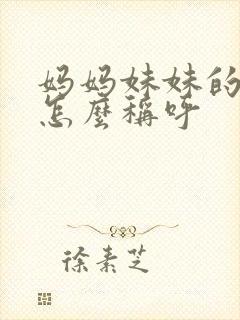 妈妈妹妹的
怎麼稱呼
徐素芝